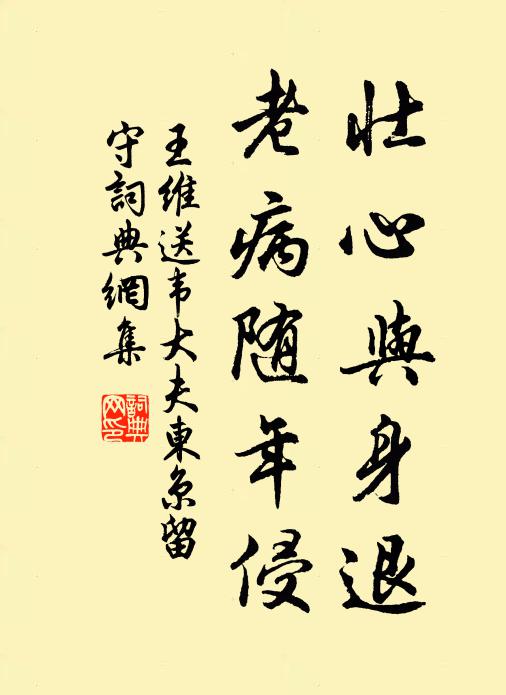 壮心與身退
老病随年侵
王維送韦大夫東京留
守詞典網集
詞典
网印